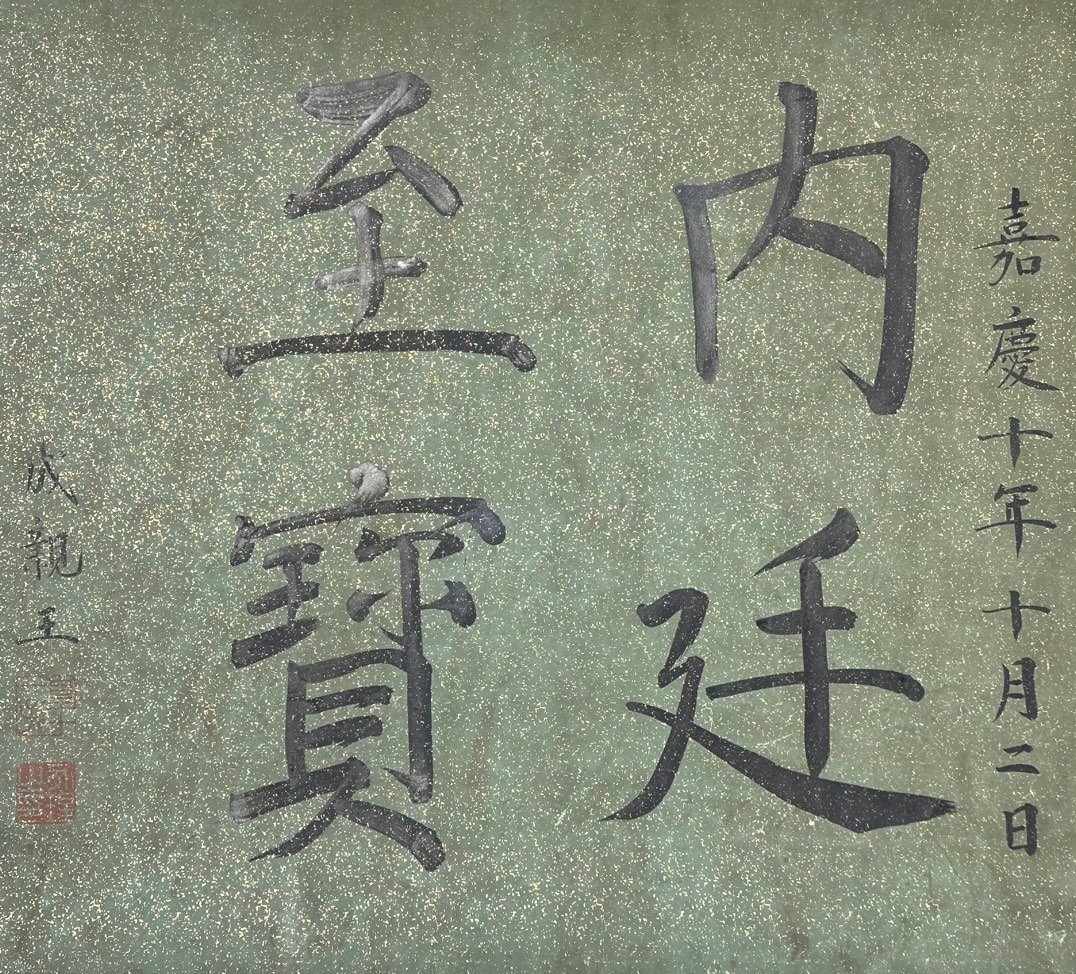 嘉慶十年十月二日
內廷
至寶
成親王